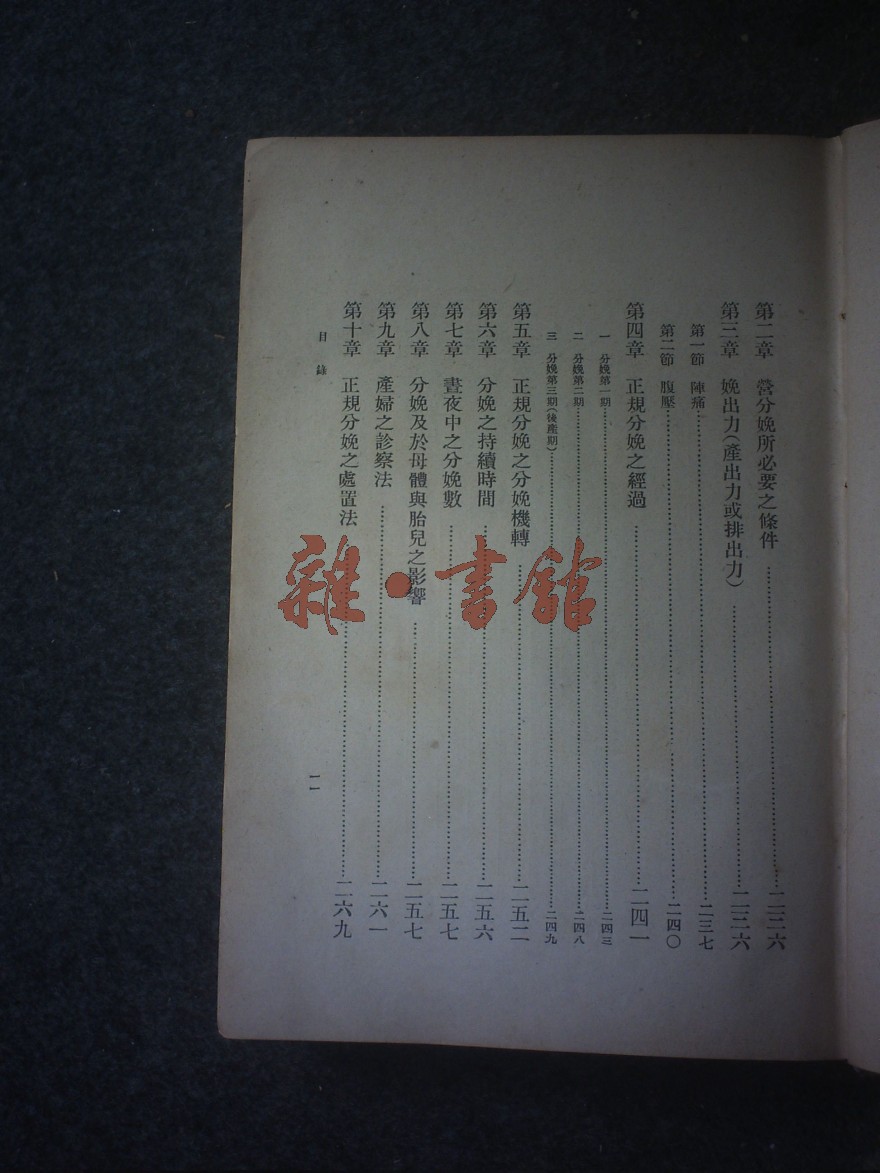 第二章　營分娩所必要之條件……二三六
第三章　娩出力(產出力或排出力)……二三六
第一節　陣痛……二三七
第二節　腹壓……二四〇
第四章　正規分娩之經過……二四一
一　分娩第一期……二四三
二　分娩第二期……二四八
三　分娩第三期(後產期)……二四九
第五章　正規分娩之分娩機轉……二五二
第六章　分娩之持續時間……二五六
第七章　晝夜中之分娩數……二五七
第八章　分娩及於母體與胎兒之影響……二五七
第九章　產婦之診察法……二六一
第十章　正規分娩之處置法……二六九
目錄　一一
雜·書館